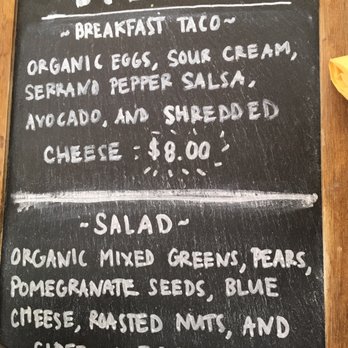 ~BREAKFAST TACO~
ORGANIC EGGS, SOUR CREAM,
SERRANO PEPPER SALSA,
AVOCADO, AND SHREDDED
CHEESE : $8.00
~SALAD~
ORGANIC MIXED GREENS, PEARS,
POMEGRANATE SEEDS, BLUE
CHEESE, ROASTED NUTS, AND